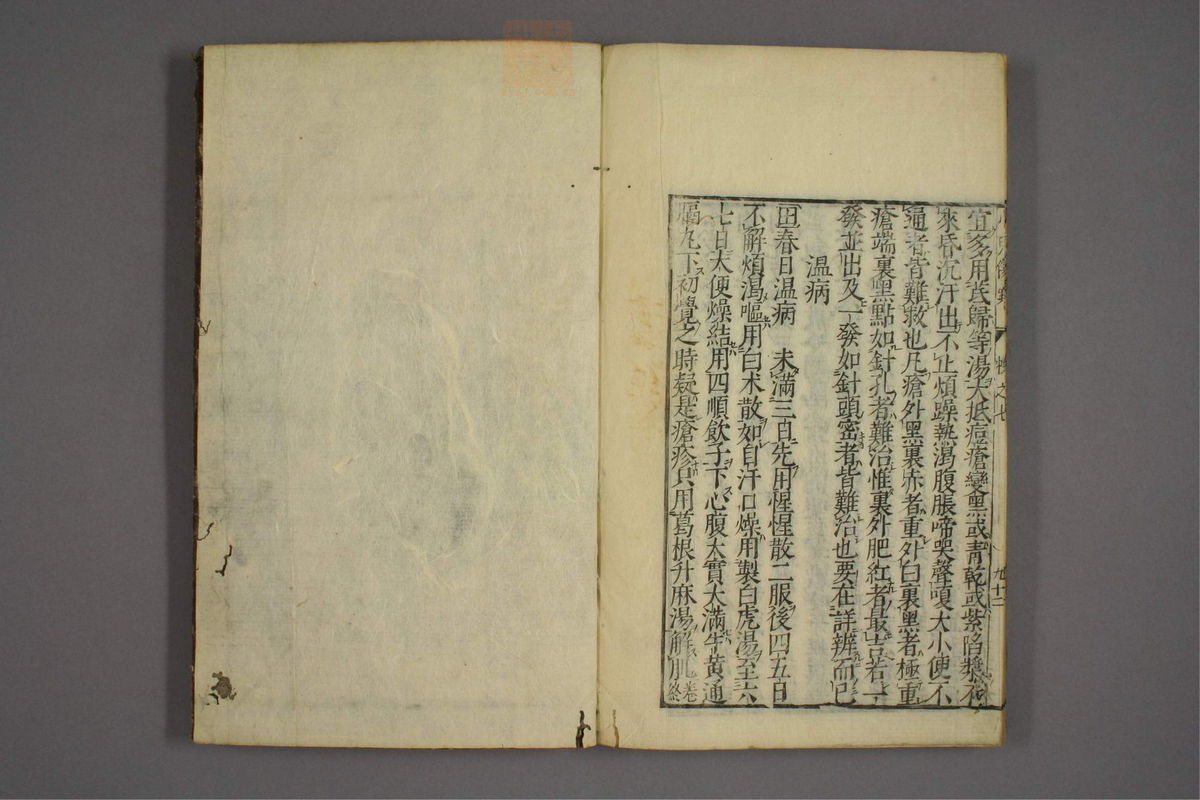 宜多用芪歸等湯大抵痘瘡變黑或青乾或紫陷漿不
來昏沉汗出不止煩躁熱渴腹脹啼哭聲嗄大小便不
通者皆難救也凡瘡外黑裏赤者重外白裏黑者極重
瘡端裏黑點如針孔者難治惟裏外肥紅者最吉若一
發並出及一發如針頭密者皆難治也要在詳辨而已
溫病
田春日温病 未滿三日先用惺惺散二服後四五日
不解煩渴嘔用白朮散如自汗口燥用製白虎湯至六
七日大便燥結用四順飲子下心腹大實大滿牛黃通
膈丸下初覺之時疑是瘡疹只用葛根升麻湯解肌卷終
卷之七
九十二